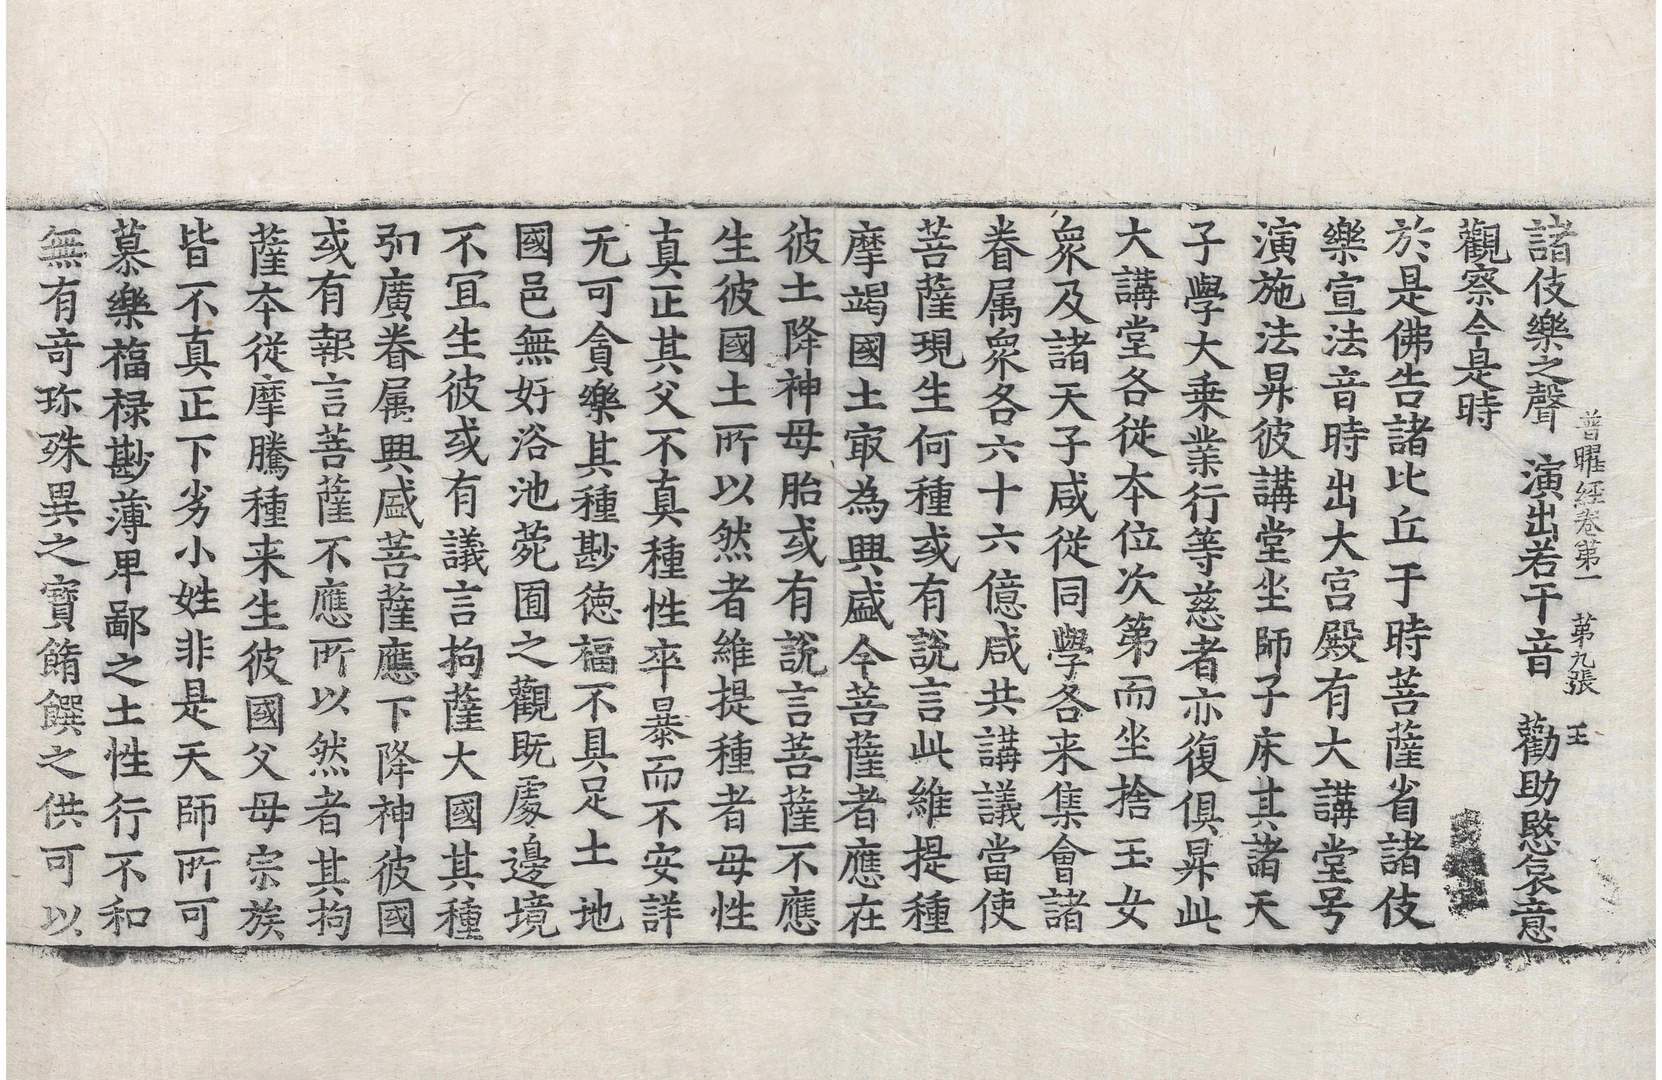 諸伎樂之聲　演出若干音　勸助愍哀意
普曜經卷第一　第九張　王
觀察今是時
於是佛告諸比丘于時菩薩省諸伎
樂宣法音時出大宮殿有大講堂号
演施法昇彼講堂坐師子床其諸天
子學大乗業行等慈者亦復俱昇此
大講堂各從夲位次第而坐捨玉女
衆及諸天子咸從同學各来集會諸
眷属衆各六十六億咸共講議當使
菩薩現生何種或有說言此維提種
摩竭國土㝡為興盛今菩薩者應在
彼土降神母胎或有說言菩薩不應
生彼國土所以然者維提種者母性
真正其父不真種性卒暴而不安詳
无可貪樂其種尠德福不具足土地
國邑無好浴池菀囿之觀既處邊境
不宜生彼或有議言拘薩大國其種
弘廣眷属興盛菩薩應下降神彼國
或有報言菩薩不應所以然者其拘
薩夲從摩騰種来生彼國父母宗族
皆不真正下劣小姓非是天師所可
慕樂福禄尠薄卑鄙之土性行不和
無有竒珎殊異之寶餚饌之供可以